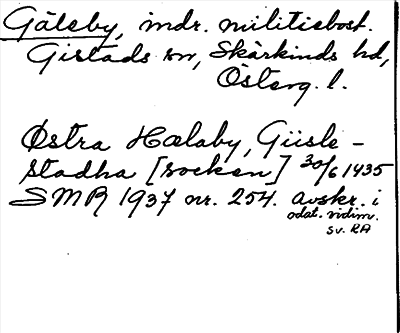 Gälsby, mdr. militiebost.
Gistads sn, Skärkinds hd,
Österg. l.
Østra Hælaby, Giisle-
stadha [socken] 30/6 1435
SMR 1937 nr. 254. avskr. i
odat. vidim.
sv. RA